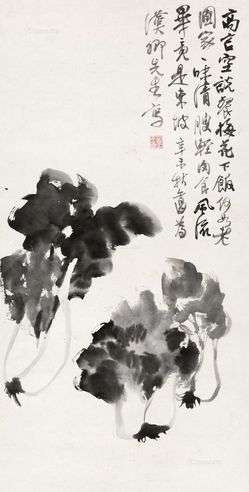 高言空說梅花下飯何如老
圃家一味清腴輕肉食風流
畢竟是東坡辛未秋為
漢卿先生寫